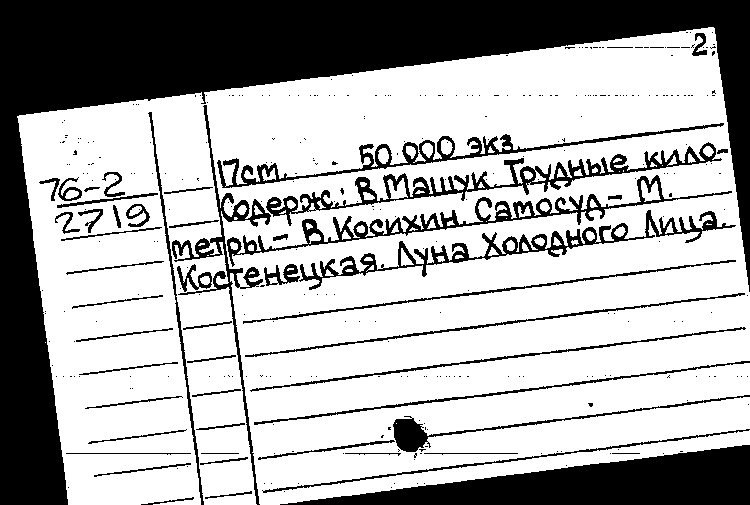 2.
17см. 50 000 экз.
76-2
2719
Содерж.: В.Машук. Трудные кило-
метры.- В.Косихин. Самосуд.- М.
Костенецкая. Луна Холодного Лица.